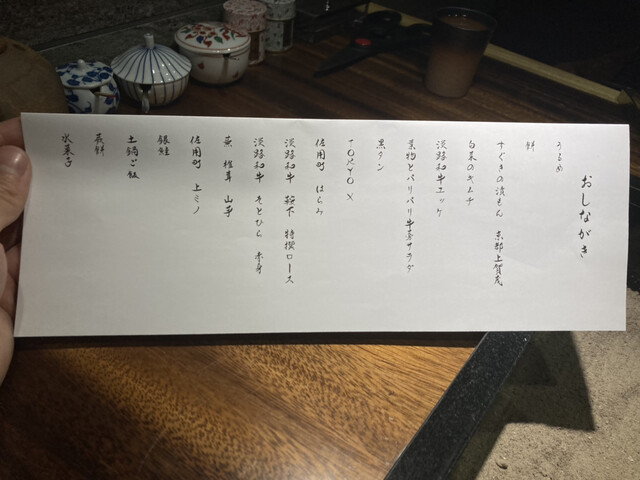 おしながき
うるめ
餅
すぐきの漬もん 京都上賀茂
白菜のキムチ
淡路和牛エッグ
葉物とパリパリ牛蒡サラダ
黒タン
TOKYO X
佐用町 はらみ
淡路和牛 鞍下 特撰ロース
淡路和牛 そとひら
蕪 椎茸 山芋
佐用町 上ミノ
銀鮭
土鍋ご飯
花餅
水菓子